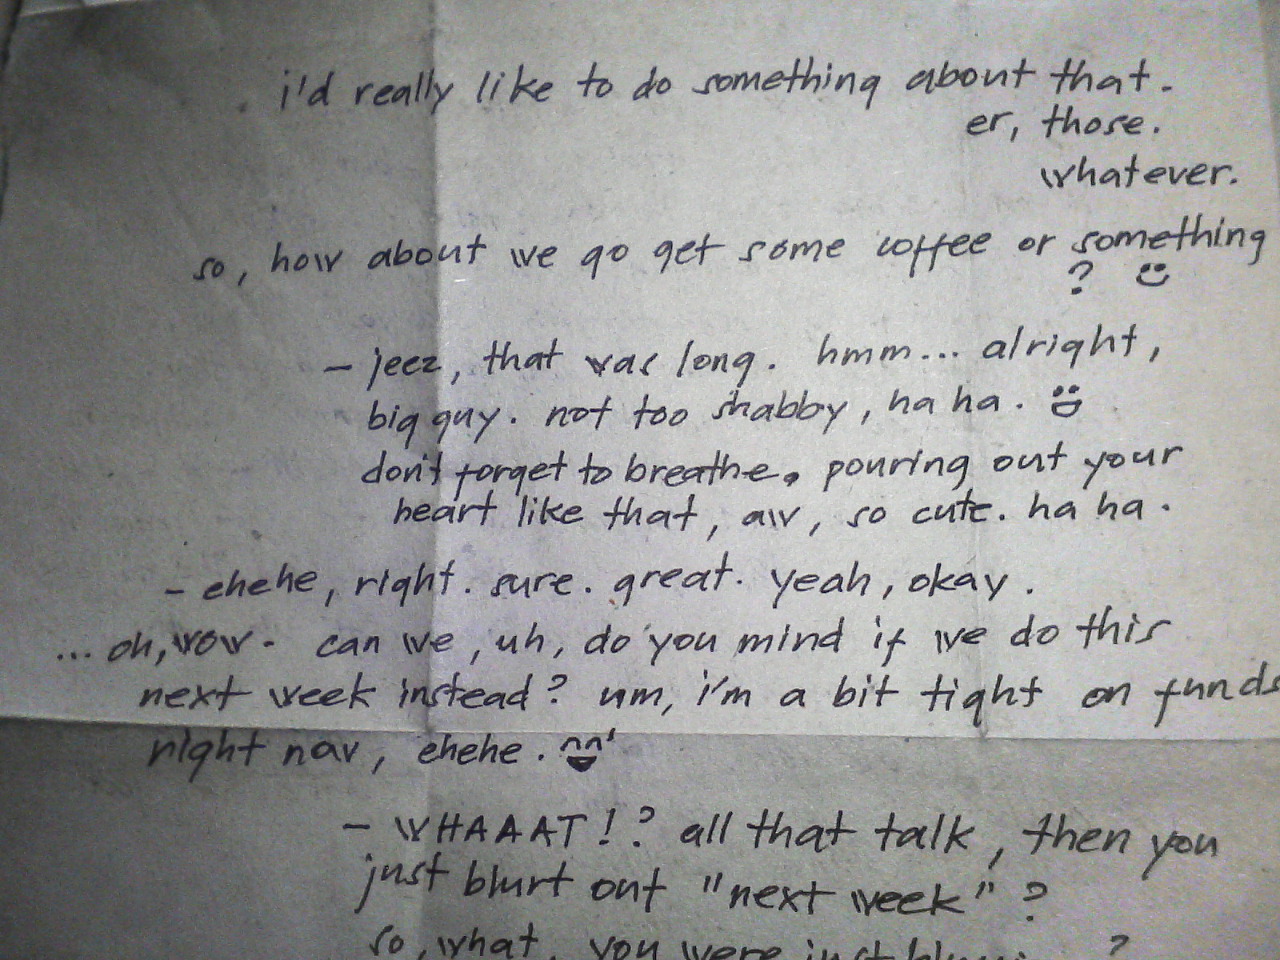 i'd really like to do something about that.
er, those.
whatever.
so, how about we go get some coffee or something
? :)
- jeez, that was long. hmm... alright,
big guy. not too shabby, ha ha. :D
don't forget to breathe. pouring out your
heart like that, aw, so cute. ha ha.
- ehehe, right. sure. great. yeah, okay.
... oh, wow. can we, uh, do you mind if we do this
next week instead? um, i'm a bit tight on funds
right now, ehehe. ^^'
- WHAAAT!? all that talk, then you
just blurt out "next week"?
so, what, you were just ?